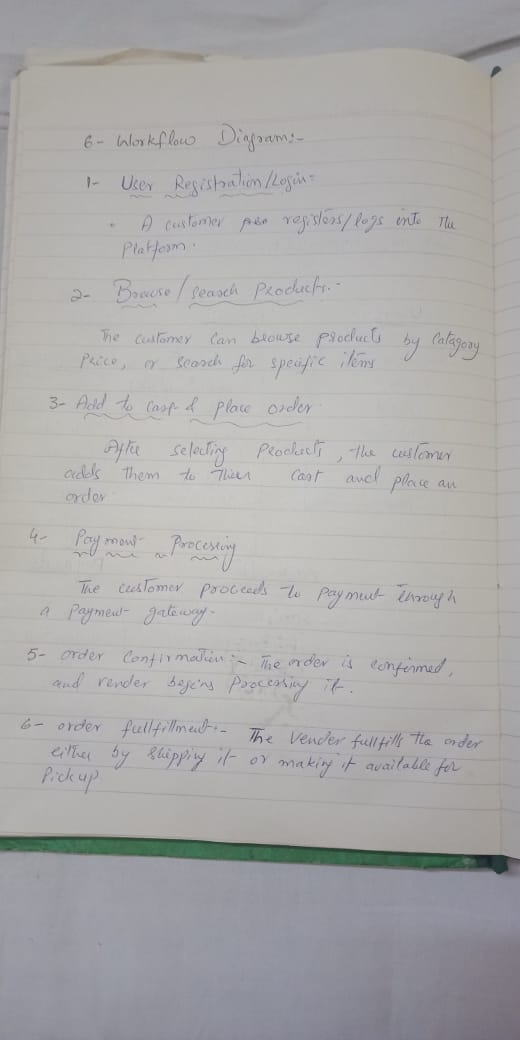 6- Workflow Diagram:-
1- User Registration/Login=
• A customer registers/logs into The
Platform.
2- Browse/Search Products.-
The customer Can browse products by Catagory
Price, or Search for specific items
3- Add to Cart & Place order
After selecting Products, the customer
adds them to Their Cart and place an
order
4- Payment Processing
The customer proceeds to payment Through
a Payment gateway.
5- order Confirmation:- The order is confirmed,
and vender begins Processing it.
6- order fullfillment:- The Vender fullfills the order
either by Shipping it or making it available for
Pickup